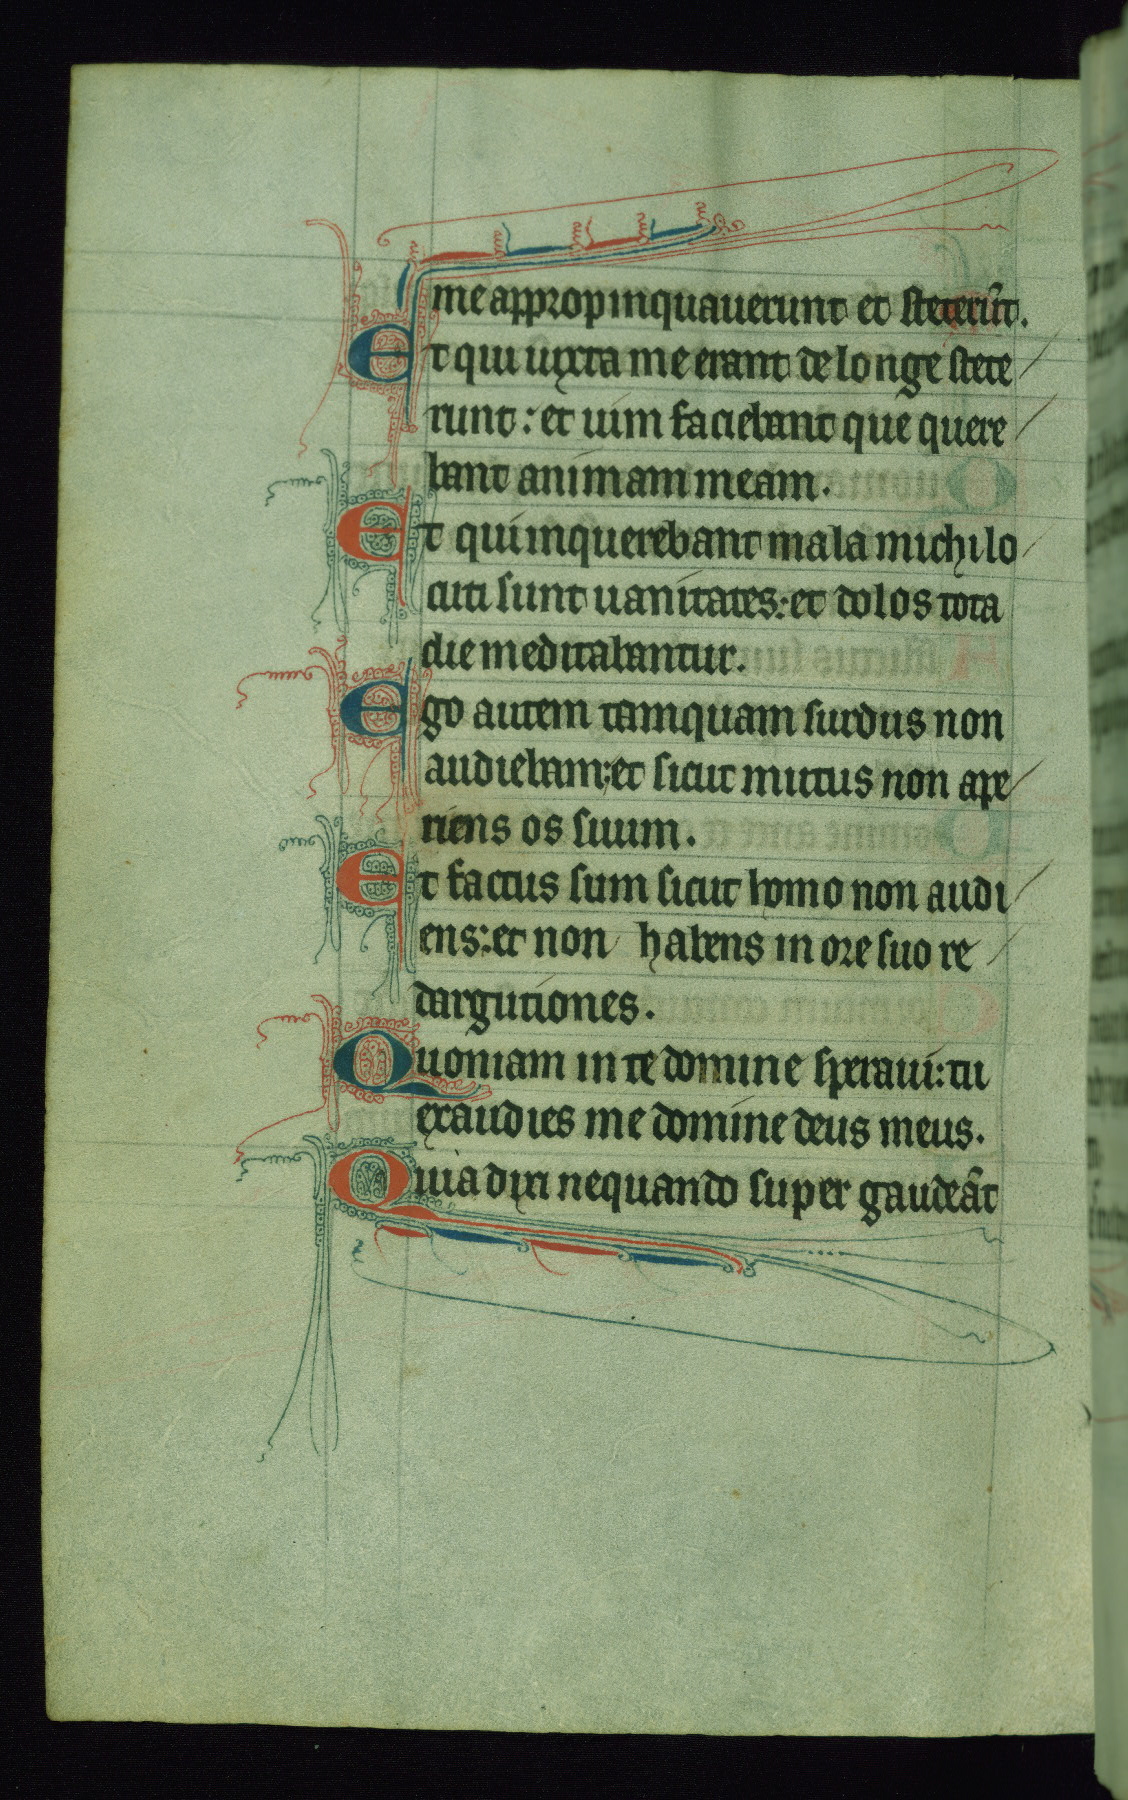 me appropinquauerunt et steterūt.
Et qui iuxta me erant de longe stete
runt: et uim faciebant que quere
bant animam meam.
Et qui inquerebant mala michi lo
cuti sunt uanitates: et dolos tota
die meditabantur.
Ego autem tamquam surdus non
audiebam: et sicut mutus non ape
riens os suum.
Et factus sum sicut homo non audi
ens: et non habens in ore suo re
dargutiones.
Quoniam in te domine speraui: tu
exaudies me domine deus meus.
Quia dixi nequando super gaudeāt